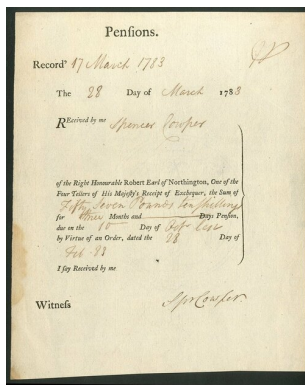 Pensions.
Record' 17 March 1783
The 28 Day of March 1783
Received by me Spencer Cowper
of the Right Honourable Robert Earl of Northington, One of the
Four Tellers of His Majesty's Receipt of Exchequer, the Sum of
Fifty Seven Pounds Ten Shillings
for three Months and Days Pension,
due on the 10 Day of Octr last
by Virtue of an Order, dated the 28 Day of
Feb 83
I say Received by me
Witness Spr Cowper.